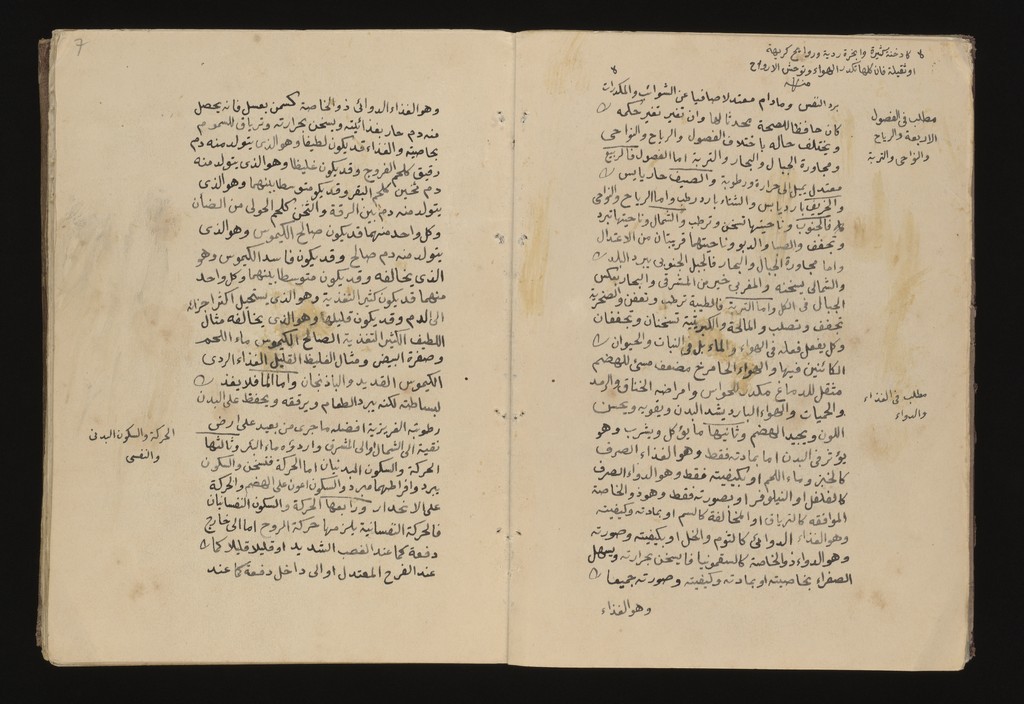 كادخنة كثيرة وابخرة ردية وروايح كريهة
او ثقيلة فان كلها تكدر الهواء وتوحش الارواح
منه
برد النفس ومادام معتدلا صافيا عن الشوائب والمكدرات
كان حافظا للصحة محدثا لها وان تغير تغير حكمه
ويختلف حاله باختلاف الفصول والرياح والنواحى
ومجاورة الجبال والبحار والتربة اما الفصول فالربيع
معتدل يميل الى حرارة ورطوبة والصيف حار يابس
والخريف بارد يابس والشتاء بارد رطب واما الرياح والنواحى
فالجنوب وناحيتها تسخن وترطب والشمال وناحيتها تبرد
وتجفف والصبا والدبور وناحيتهما قريبتان من الاعتدال
واما مجاورة الجبال والبحار فالجبل الجنوبى يبرد البلد
والشمالى يسخنه والمغربى خير من المشرقى والبحار بعكس
الجبال فى الكل واما التربة فالطينية ترطب وتعفن والصخرية
تجفف وتصلب والمالحة والكبريتية تسخنان وتجففان
وكل يفعل فعله فى الهواء والماء بل فى النبات والحيوان
الكائنين فيها والهواء الحار مرخ مضعف مسئ للهضم
مثقل للدماغ مكدر للحواس وامراضه الخناق والرمد
والحميات والهواء البارد يشد البدن ويقويه ويحسن
اللون ويجيد الهضم وثانيها ما يؤكل ويشرب وهو
يؤثر فى البدن اما بمادته فقط وهو الغذاء الصرف
كالخبز وماء اللحم او بكيفيته فقط وهو الدواء الصرف
كالفلفل او النيلوفر او بصورته فقط وهو ذو الخاصة
الموافقه كالترياق او المخالفة كالسم او بمادته وكيفيته
وهو الغذاء الدوائى كالثوم والخل او بكيفيته وصورته
وهو الدواء ذو الخاصة كالسقمونيا فا يسخن بحرارته ويسهل
الصفراء بخاصيته او بمادته وكيفيته وصورته جميعا
وهو الغذاء
مطلب فى الفصول
الاربعة والرياح
والنواحى والتربة
مطلب فى الغذاء
والدواء
7
وهو الغذاء الدوائى ذو الخاصة كسمن بعسل فانه يحصل
منه دم حار بغذائيته ويسخن بحرارته وترياق للسموم
بخاصيته والغذاء قد يكون لطيفا وهو الذى يتولد منه دم
رقيق كلحم الفروج وقد يكون غليظا وهو الذى يتولد منه
دم ثخين كلحم البقر وقد يكون متوسطا بينهما وهو الذى
يتولد منه دم بين الرقة والثخن كلحم الحولى من الضان
وكل واحد منهما قد يكون صالح الكيموس وهو الذى
يتولد منه دم صالح وقد يكون فاسد الكيموس وهو
الذى يخالفه وقد يكون متوسطا بينهما وكل واحد
منهما قد يكون كثير التغذية وهو الذى يستحيل اكثر اجزائه
الى الدم وقد يكون قليلها وهو الذى يخالفه مثال
اللطيف الكثير التغذية الصالح الكيموس ماء اللحم
وصفرة البيض ومثال الغليظ القليل الغذاء الردى
الكيموس القديد والباذنجان واما الماء فلا يغذ
لبساطته لكنه يبرد الطعام ويرققه ويحفظ على البدن
رطوبته الغريزية افضله ما جرى من بعيد على ارض
نقية الى الشمال او الى المشرق واردؤه ماء البئر وثالثها
الحركة والسكون البدنيان اما الحركة فتسخن والسكون
يبرد وافراطهما مبرد والسكون اعون على الهضم والحركة
على الانحدار ورابعها الحركة والسكون النفسانيان
فالحركة النفسانية يلزمها حركة الروح اما الى خارج
دفعة كما عند الغضب الشديد او قليلا قليلا كما
عند الفرح المعتدل او الى داخل دفعة كما عند
الحركة والسكون البدنى
والنفسى